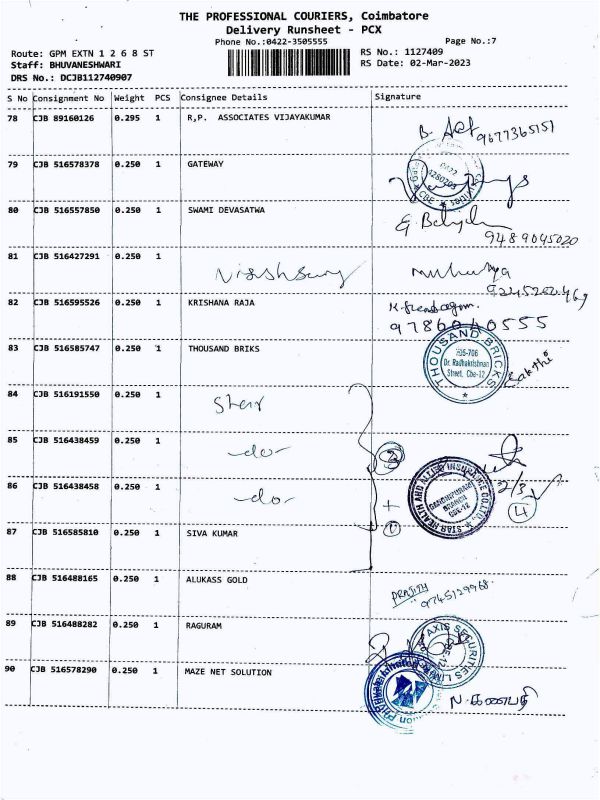 THE PROFESSIONAL COURIERS, Coimbatore
Delivery Runsheet - PCX
Phone No.:0422-3505555 Page No.:7
Route: GPM EXTN 1 2 6 8 ST RS No.: 1127409
Staff: BHUVANESHWARI RS Date: 02-Mar-2023
DRS No.: DCJB112740907
S No Consignment No Weight PCS Consignee Details Signature
78 CJB 89160126 0.295 1 R,P. ASSOCIATES VIJAYAKUMAR
9677365151
79 CJB 516578378 0.250 1 GATEWAY
80 CJB 516557850 0.250 1 SWAMI DEVASATWA
9489045020
81 CJB 516427291 0.250 1
82 CJB 516595526 0.250 1 KRISHANA RAJA
9786040555
83 CJB 516585747 0.250 1 THOUSAND BRIKS
THOUSAND BRICKS
Dr. Radhakrishnan
Street, Cbe-12
Sakthi
84 CJB 516191550 0.250 1 Star
85 CJB 516438459 0.250 1 -do-
86 CJB 516438458 0.250 1 -do-
STAR HEALTH AND ALLIED INSURANCE CO.LTD.
GANDHIPURAM
BRANCH
CBE-12
2/3
4
87 CJB 516585810 0.250 1 SIVA KUMAR
88 CJB 516488165 0.250 1 ALUKASS GOLD
PRAJITH
9745129968
89 CJB 516488282 0.250 1 RAGURAM
AXIS SECURITIES LIMITED
90 CJB 516578290 0.250 1 MAZE NET SOLUTION
N. கணபதி